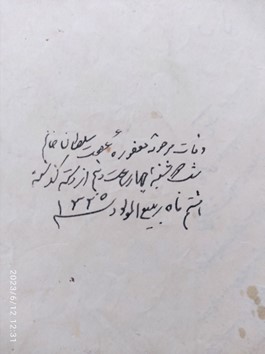 وفات مرحومه مغفوره عصمت سلطان خانم
شب شنبه چهار ساعت و نیم از دسته گذشته
هشتم ماه ربیع المولود سنه ۱۳۳۵
2023/6/12 12:31